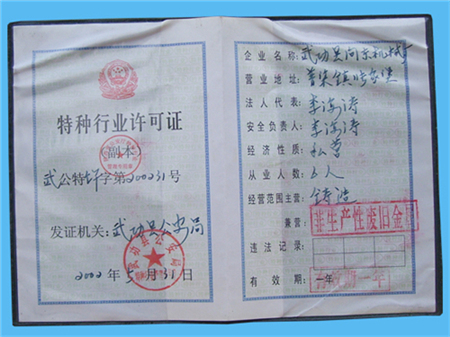 特种行业许可证
副本
武公特字第200231号
发证机关：武功县公安局
武功县公安局
2002年5月31日
企业名称：武功县尚东机械厂
营业地址：普集镇
法人代表：李海涛
安全负责人：李海涛
经济性质：私营
从业人数：6人
经营范围主营：铸造
兼营：非生产性废旧金
违法记录：
有效期：一年